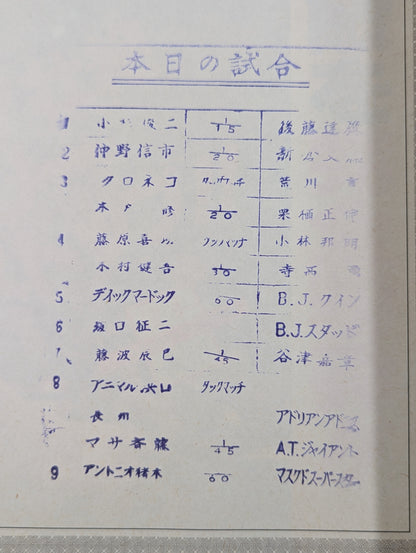 本日の試合
1 小杉俊二 1/15 後藤達俊
2 仲野信市 1/20 新倉
3 クロネコ タッグマッチ 荒川
木戸 修 1/20 栗栖正伸
4 藤原喜 タッグマッチ 小林邦明
木村健吾 1/30 寺西
5 ディックマードック 60 B.J.クイン
6 坂口征二 B.J.スタッド
7 藤波辰巳 1/45 谷津嘉章
8 アニマル浜口 タッグマッチ
長州 アドリアンアドニス
マサ斉藤 1/45 A.T.ジャイアント
9 アントニオ猪木 60 マスクドスーパースター